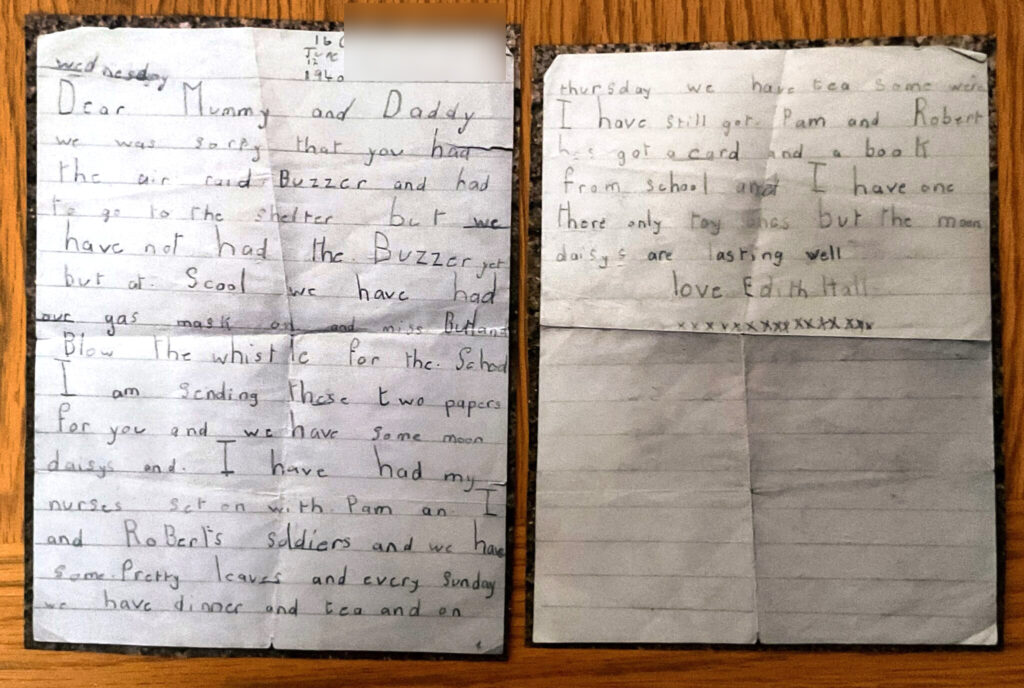 16
June
12
1940
wednesday
Dear Mummy and Daddy
we was sorry that you had
the air raid Buzzer and had
to go to the shelter but we
have not had the Buzzer yet
but at Scool we have had
our gas mask on and miss Butland
Blow the whistle for the School
I am sending these two papers
for you and we have some moon
daisys and I have had my
nurses set on with Pam an I
and RoBert's soldiers and we have
some Pretty leaves and every Sunday
we have dinner and tea and on
thursday we have tea some
I have still got Pam and Robert
has got a card and a book
from school and I have one
there only toy ones but the moon
daisys are lasting well
love Edith Hall
x x x x x x x x x x x x x x x